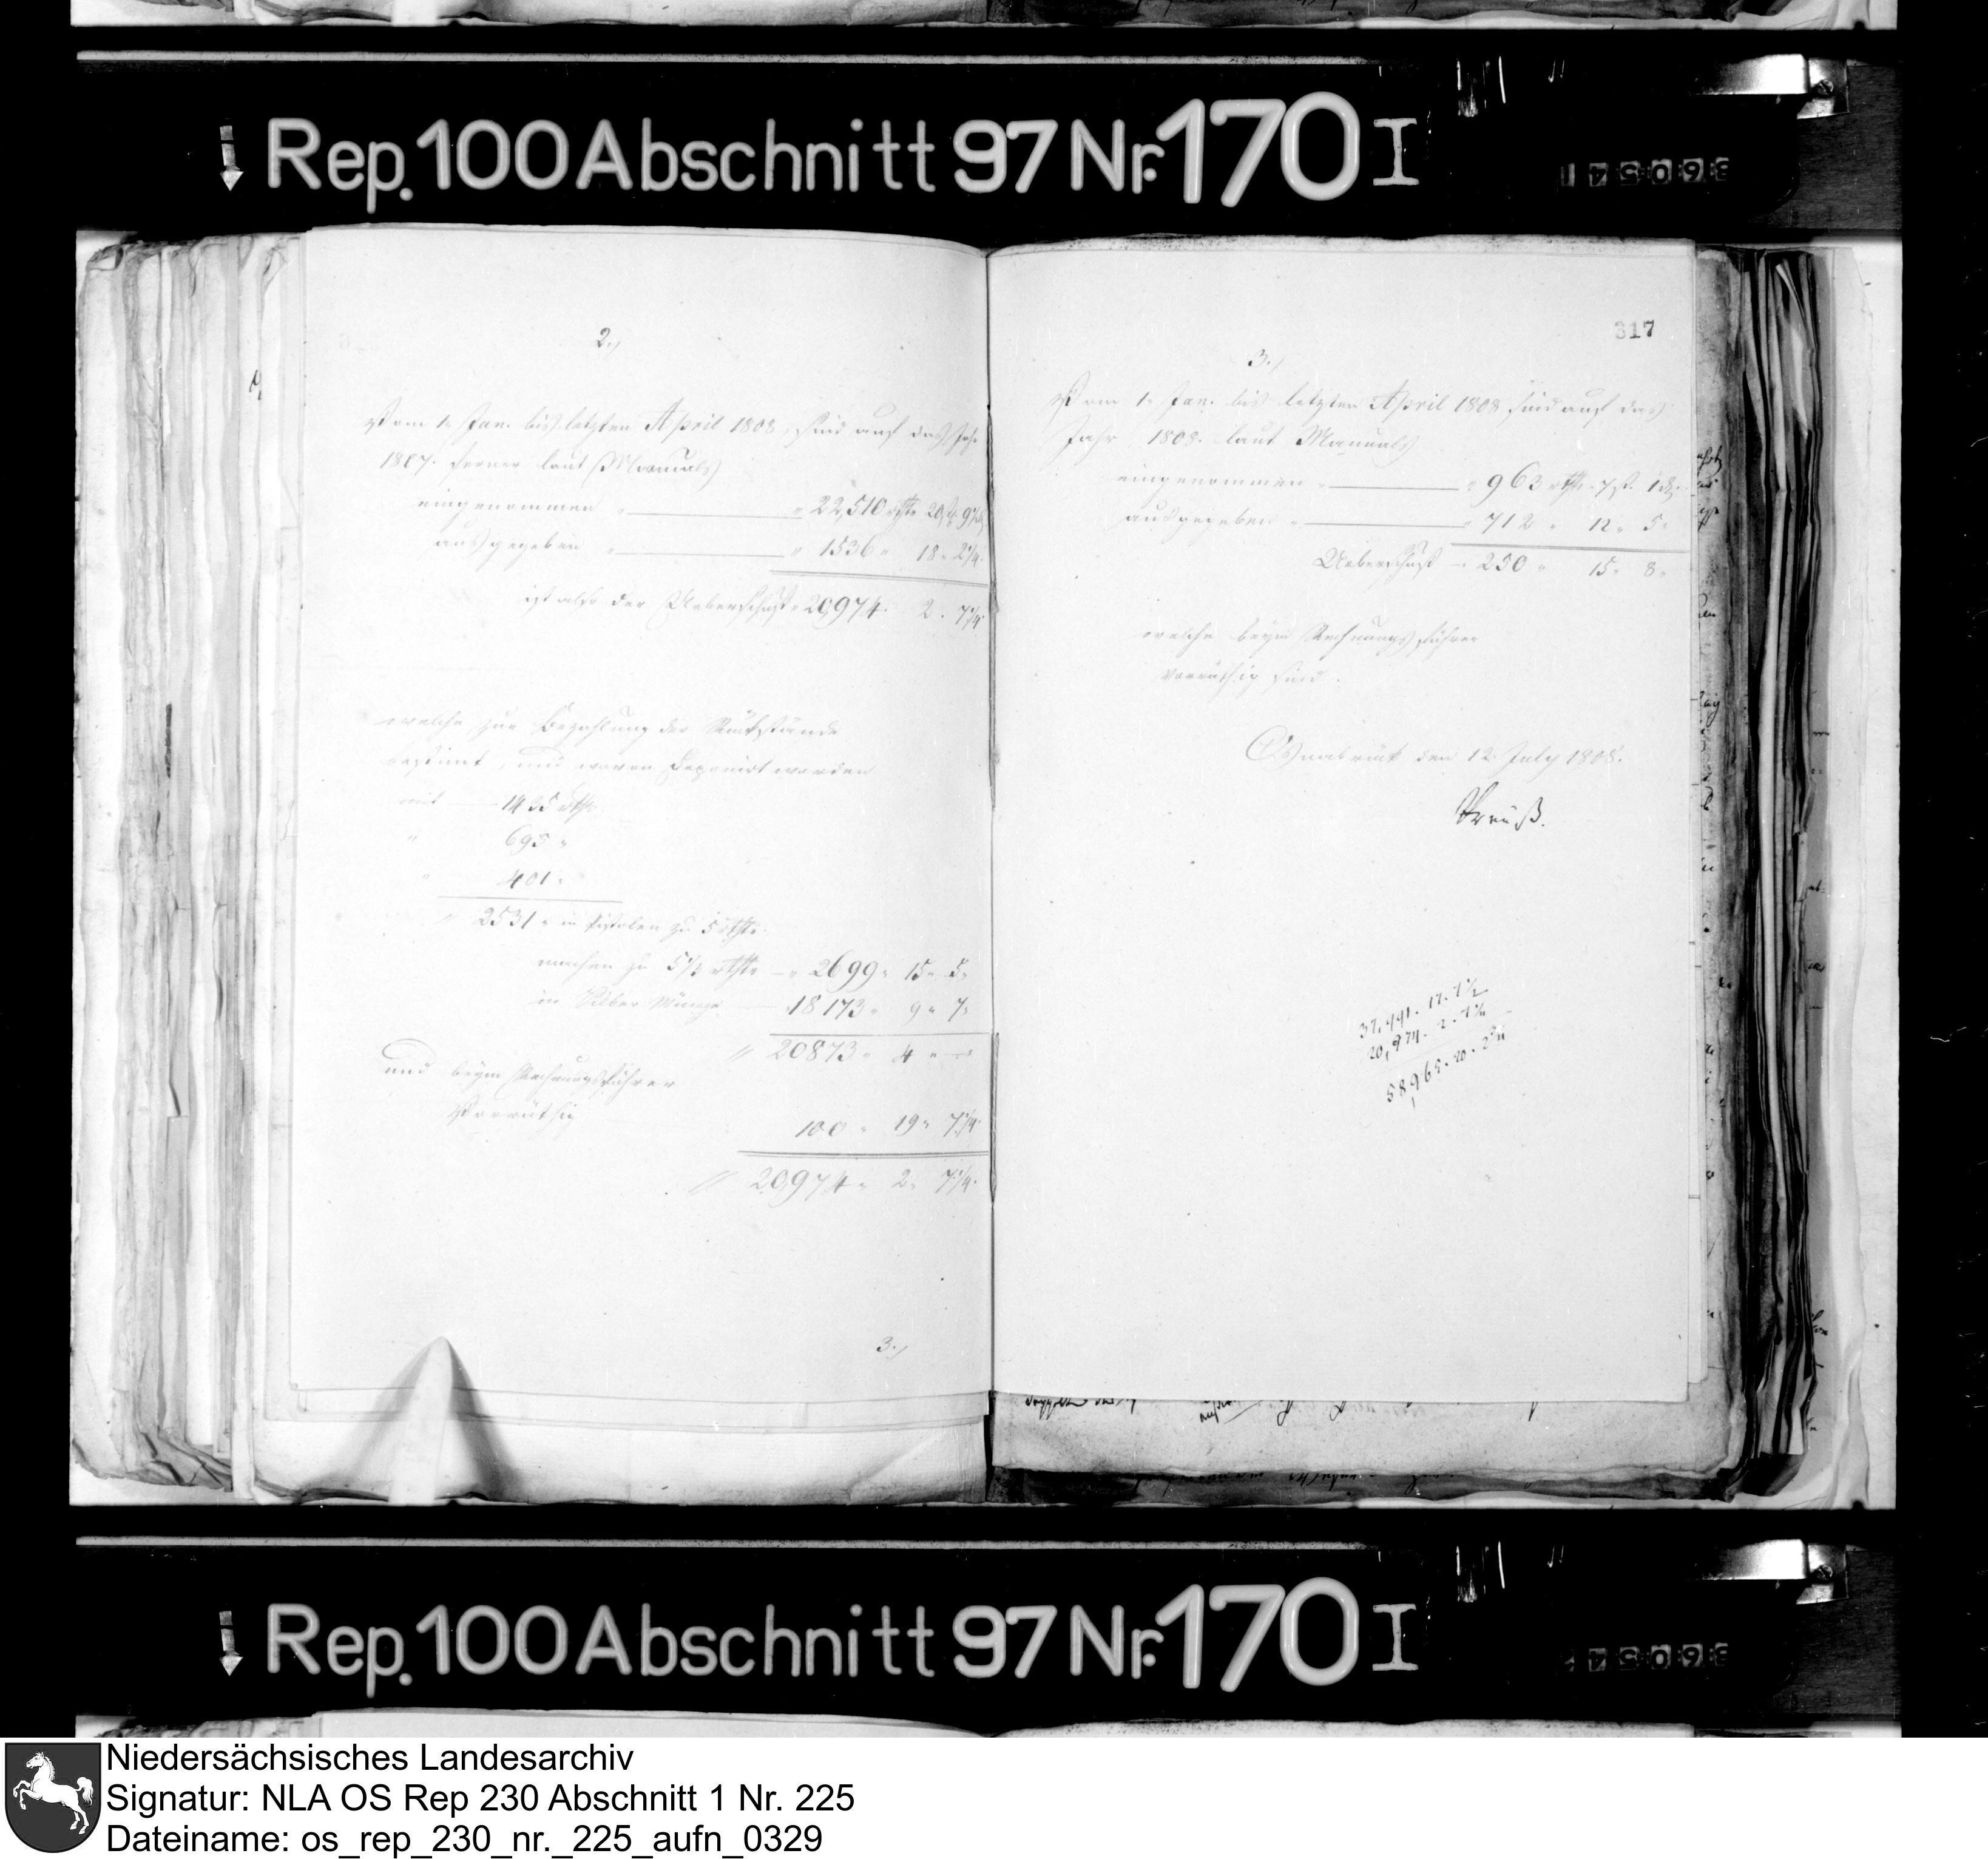 Rep. 100 Abschnitt 97 Nr. 170 I
2.)
Vom 1. Jan. bis letzten April 1808. sind auf das Jahr
1807. ferner laut Manuals
eingenommen " 22,510 rthlr 20 ß 9¾ d
ausgegeben " 1536 " 18 " 2¼
ist also der Ueberschuß " 20974 " 2 " 7¼
welche zur Bezahlung der Rückstände
bestimt, und waren Deponirt worden
mit 1435 rthlr
" 695 "
" 401 "
" 2531 " in Pistolen zu 5 rthlr
machen zu 5⅓ rthlr " 2699 " 15 " 5 "
in Silber Münze 18173 " 9 " 7 "
20873 " 4 " —
und beym Rechnungsführer
Vorräthig
100 " 19 " 7¼
20974 " 2 " 7¼
3.)
317
3.)
Vom 1. Jan. bis letzten April 1808 sind auf das
Jahr 1808. laut Manuals
eingenommen " 963 rthlr 7 ß 1 d
ausgegeben " 712 " 12 " 5 "
Ueberschuß 250 " 15 " 8 "
welche beym Rechnungsführer
vorräthig sind.
Osnabrück den 12 July 1808.
Preuß.
37,991. 17. 7½
20,974. 2. 7¼
58,965. 20. 2¾
Rep. 100 Abschnitt 97 Nr. 170 I
Niedersächsisches Landesarchiv
Signatur: NLA OS Rep 230 Abschnitt 1 Nr. 225
Dateiname: os_rep_230_nr._225_aufn_0329